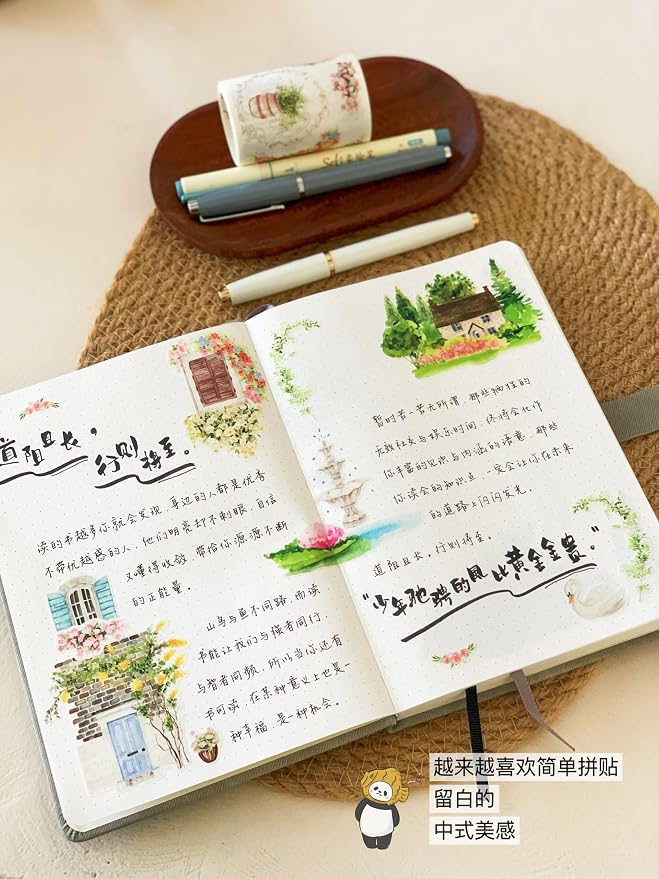 道阻且长,
行则将至。
读的书越多你就会发现,身边的人都是优秀
不带优越感的人,他们明亮却不刺眼,自信
又懂得收敛,带给你源源不断
的正能量。
山鸟与鱼不同路,而读
书能让我们与强者同行,
与智者同频,所以当你还有
书可读,在某种意义上也是一
种幸福,是一种机会。
暂时苦一苦无所谓,那些牺牲的
无效社友与娱乐时间,终将会化作
你丰富的见识与内涵的谱意,那些
你读会的知识点,一定会让你在未来
的道路上闪闪发光。
道阻且长,行则将至。
"少年驰骋的风比黄金金贵。"
越来越喜欢简单拼贴
留白的
中式美感